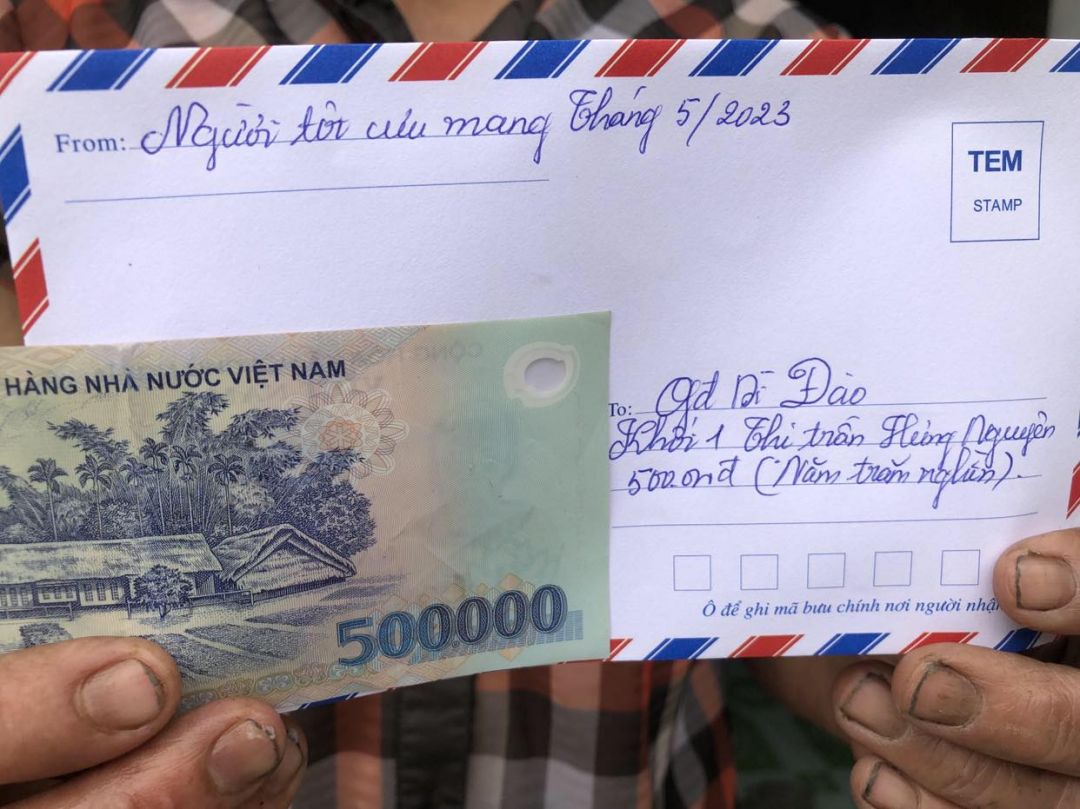 From: Người tôi cưu mang Tháng 5/2023
TEM
STAMP
HÀNG NHÀ NƯỚC VIỆT NAM
500000
To: Gđ Bì Đào
Khối 1 Thị trấn Hưng Nguyên
500.nđ (Năm trăm nghìn).
Ô để ghi mã bưu chính nơi người nhận